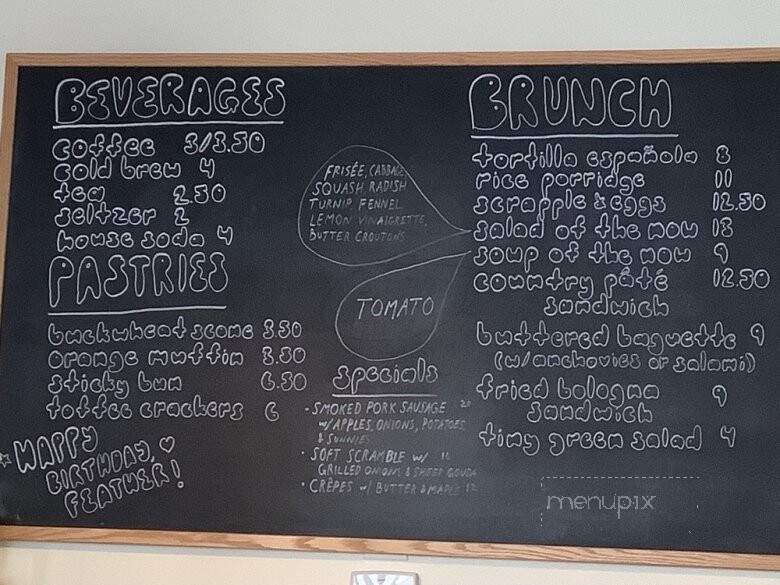 BEVERAGES
coffee 3/3.50
cold brew 4
tea 2.50
seltzer 2
house soda 4
PASTRIES
buckwheat scone 3.50
orange muffin 3.50
sticky bun 6.50
toffee crackers 6
HAPPY
BIRTHDAY,
FEATHER!
FRISÉE, CABBAGE,
SQUASH, RADISH
TURNIP FENNEL
LEMON VINAIGRETTE,
BUTTER CROUTONS
TOMATO
specials
• SMOKED PORK SAUSAGE 20
w/ APPLES, ONIONS, POTATOES
& SUNNIES
• SOFT SCRAMBLE w/
GRILLED ONIONS & SHEEP GOUDA
• CRÊPES w/ BUTTER & MAPLE 12
BRUNCH
tortilla española 8
rice porridge 11
scrapple & eggs 12.50
salad of the now 13
soup of the now 9
country pâté 12.50
sandwich
buttered baguette 9
(w/anchovies or salami)
fried bologna 9
sandwich
tiny green salad 4
menupix